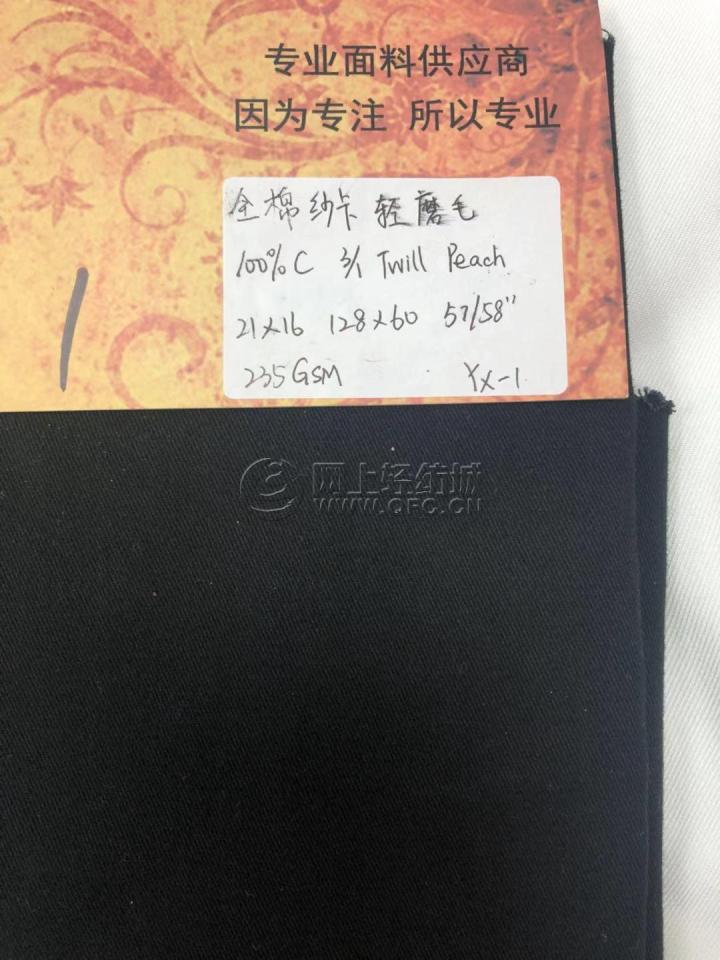 专业面料供应商
因为专注 所以专业
全棉纱卡 轻磨毛
100%C 3/1 Twill Peach
21×16 128×60 57/58"
235GSM YX-1
1
网上轻纺城
WWW.QFC.CN